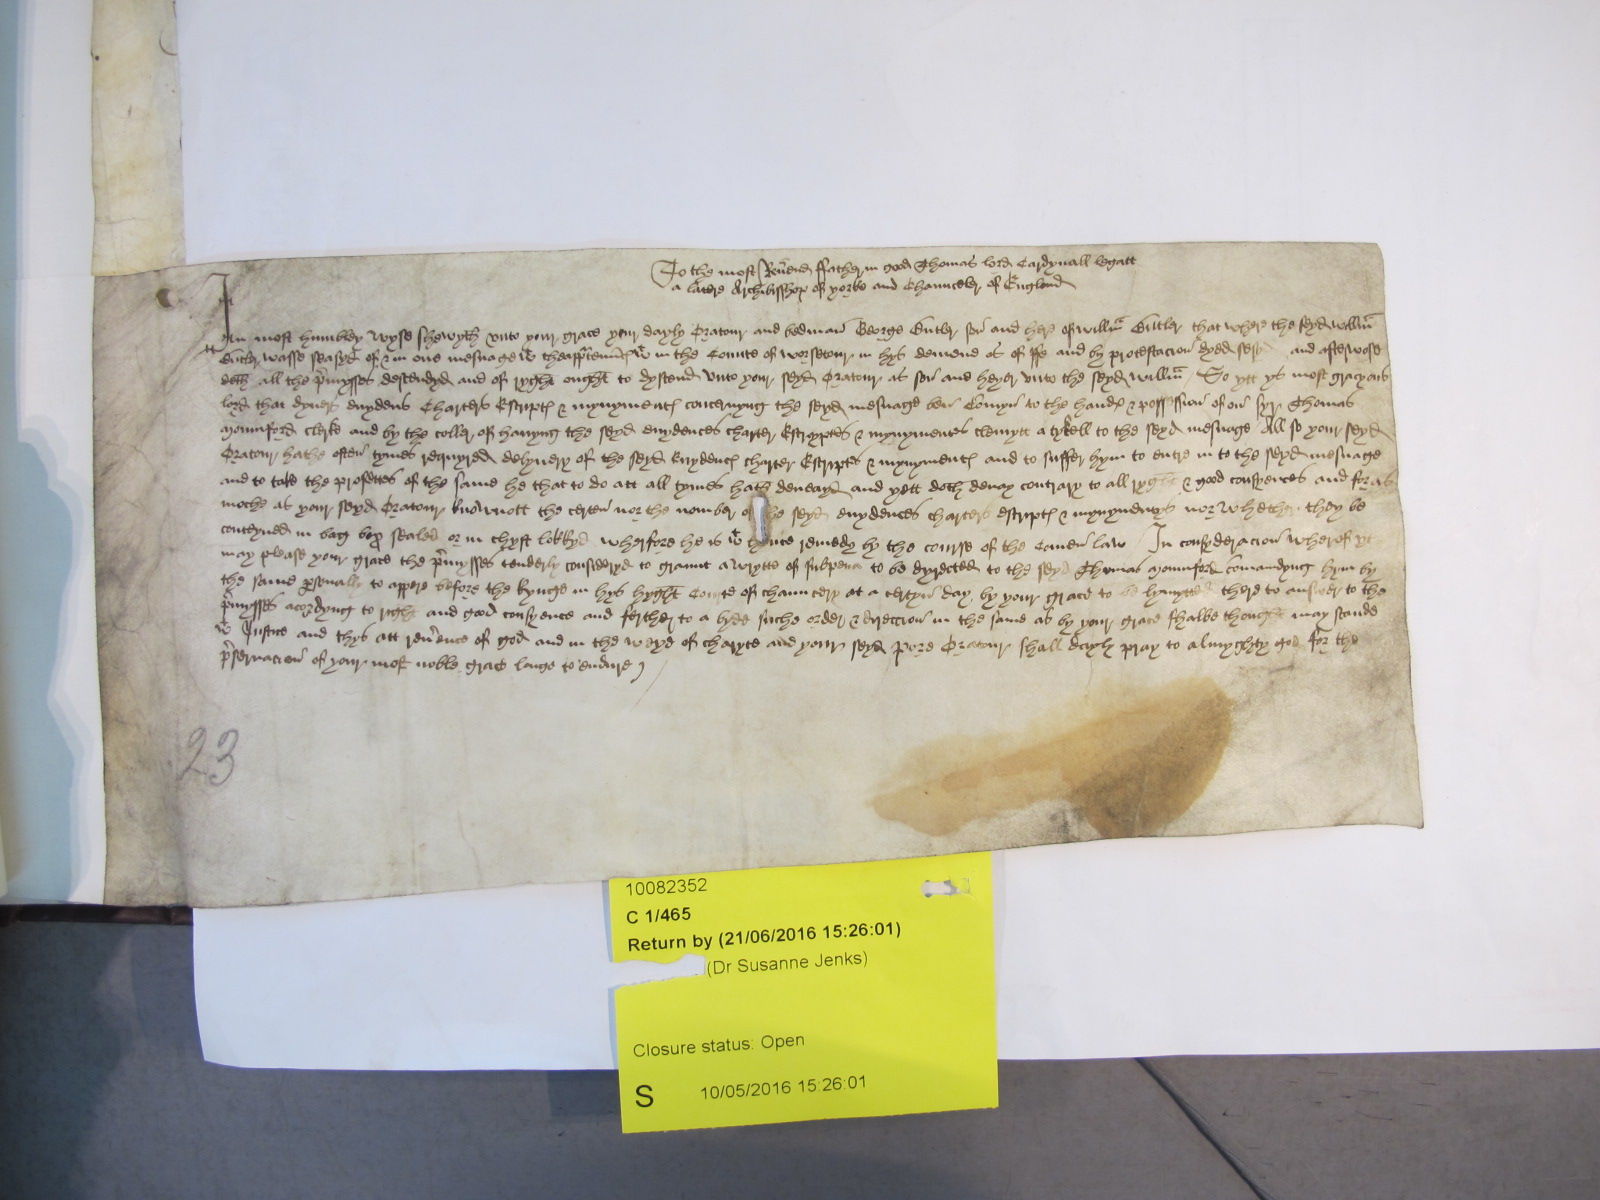 To the most Reu'end ffather in god Thomas lord Cardynall legatt
a latere Archibisshop of yorke and Chaunceler of Englond
In most humbley wyse shewyth vnto your grace your dayly Oratour and bedman George Butler son and here of Will'm Butler that where the seyd Will'm
Butler wasse seasyd of & in one mesuage w' in the Counte of worsetour in hys demend as of ffe and by protestacion dyed and afterwose
all the p'mysses descendyd and of ryght ought to dyscend vnto your seyd Oratour as son and heyer vnto the seyd Will'm / So ytt ys most gracyous
lord that dyuers euydens Charters Escript & mynyment concernyng the seyd mesuage ben Comyn to the hand & possession of on Syr Thomas
Mommford clerke and by the coller of hauyng the seyd euydences charter Escryptes & mynymentes cleymytt a tytell to the seyd mesuage All so your seyd
Oratour hathe often tymes requyred delyuery of the seyd Euydenc charter Escriptes & mynyment and to suffer hym to entre in to the seyd mesuage
and to take the profettes of the same he that to do att all tymes hath deneayd and yett doth denay contrary to all ryght & good consyences and for as
moche as your seyd Oratour knownott the certen nor the nomber of the seyd euydences charters escript & mynymentys nor whether they be
conteyned in bag box sealed or in chyst lokkyd wherfore he is w't remedy by the course of the Comen law / In consyderacion wherof yt
may please your grace the p'mysses tenderly consideryd to graunt a wrytte of subpena to be dyrected to the seyd Thomas Mommford comandyng hym by
the same p'sonally to appere before the kynge in hys hyght Corte of chauncery at a certeyn day by your grace to be lymytted there to answer to the
p'mysses acordyng to ryght and good consyence and ferther to a byde suche order & dyreccion in the same as by your grace shalbe thought may stande
w' Justice and thys att reu'ence of god and in the weye of charyte and your seyd pore Oratour shall dayly pray to almyghty god for the
p'seruacion of your most noble grace longe to endure
23
10082352
C 1/465
Return by (21/06/2016 15:26:01)
(Dr Susanne Jenks)
Closure status: Open
S 10/05/2016 15:26:01